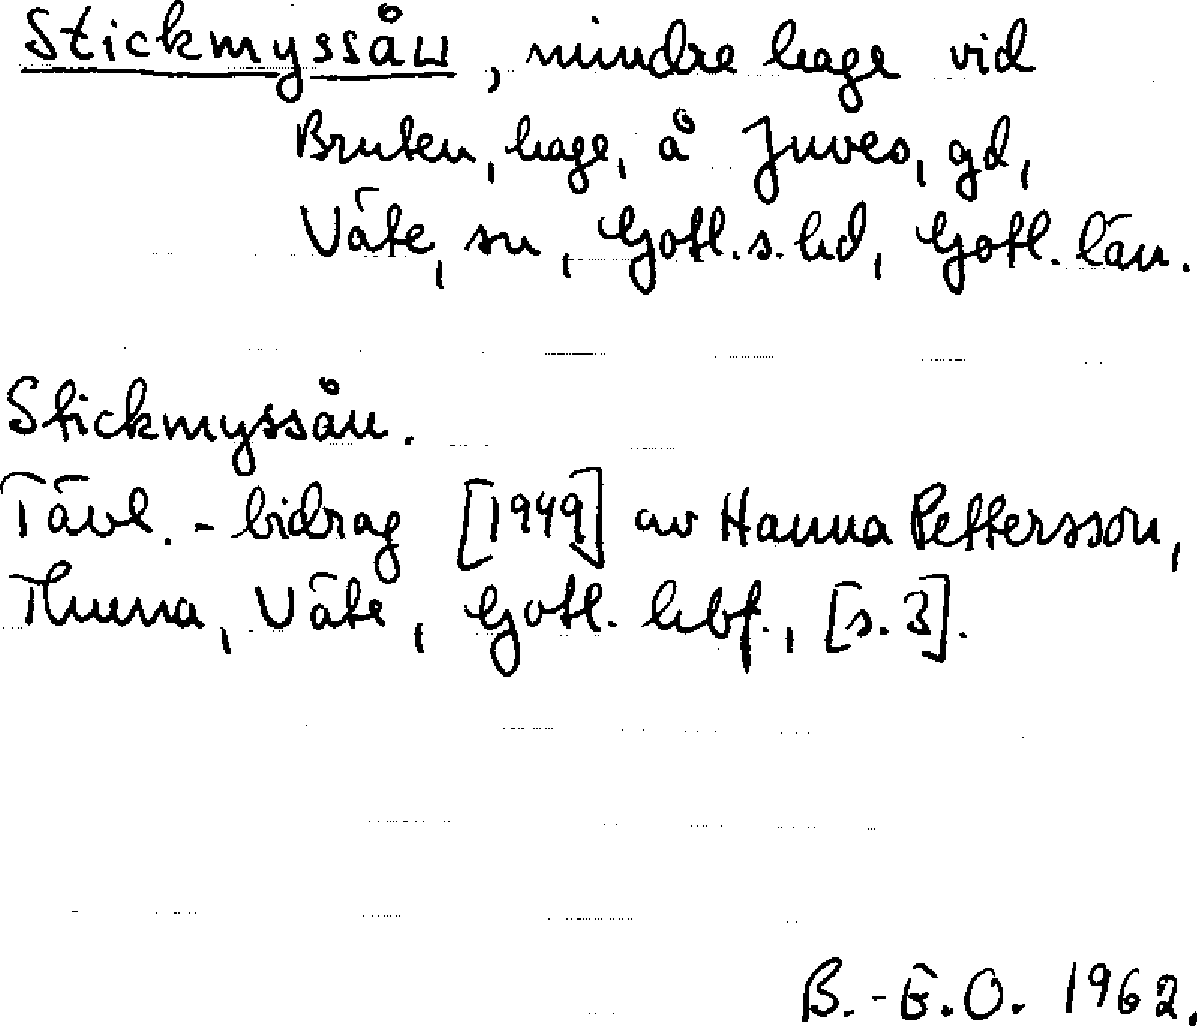 Stickmyssån, mindre hage vid
Bruten, hage, å Juves, gd,
Väte, sn, Gotl.s. hd, Gotl. län.
Stickmyssån.
Tävl.-bidrag [1949] av Hanna Pettersson,
Thuna, Väte, Gotl. hbf., [s. 3].
B.-G.O. 1962.